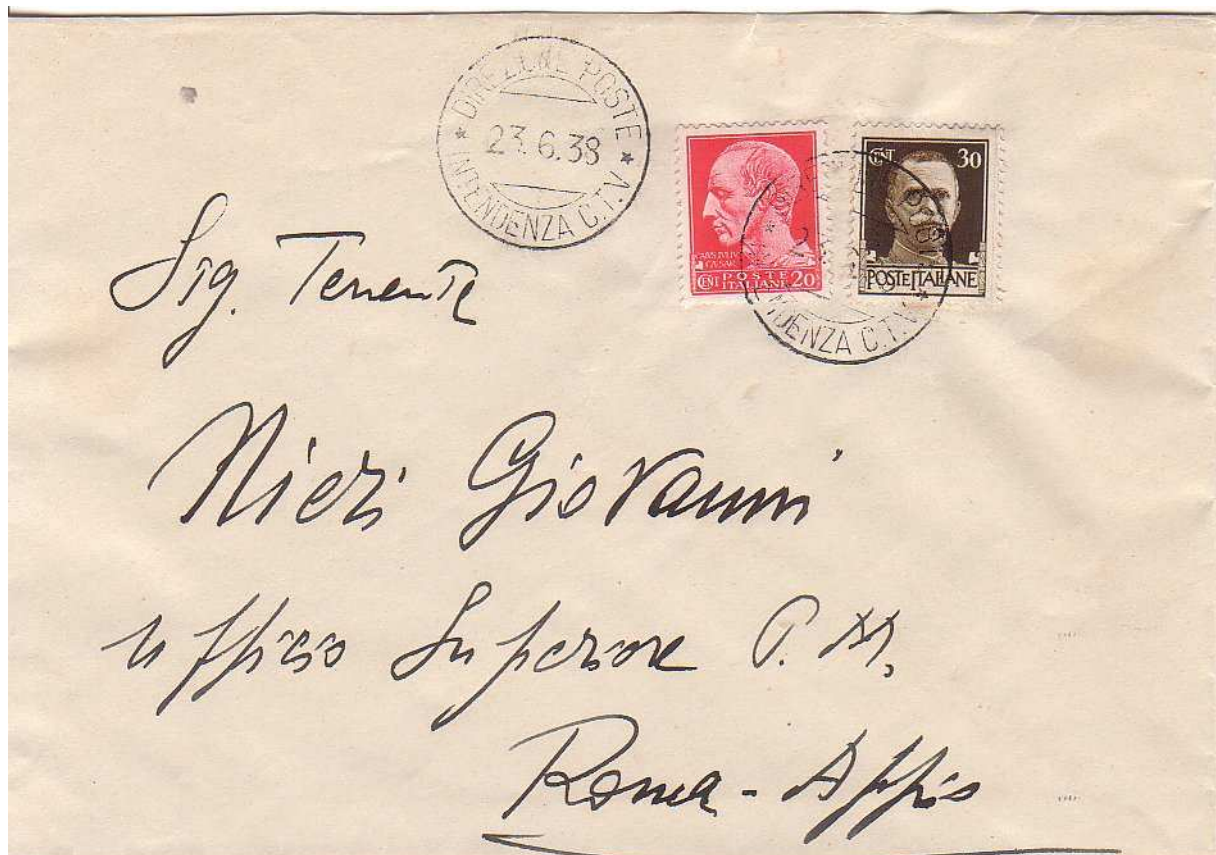 * DIREZIONE POSTE *
23.6.38
INTENDENZA C.T.V.
CAIVS IVLIVS
CAESAR
CENT POSTE
ITALIANE 20
CENT 30
POSTE ITALIANE
ENDENZA C.T.V. *
Sig. Tenente
Nieri Giovanni
Ufficio Superiore P. M.
Roma - Appio